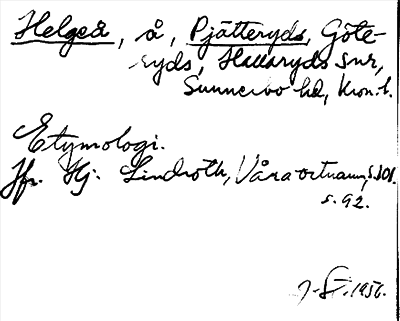 Helgeå, å, Pjätteryds, Göte-
ryds, Hallaryds snr,
Sunnerbo hd, Kron. l.
Etymologi.
Jfr. Hj. Lindroth, Våra ortnamn, s.
s. 92.
1956.